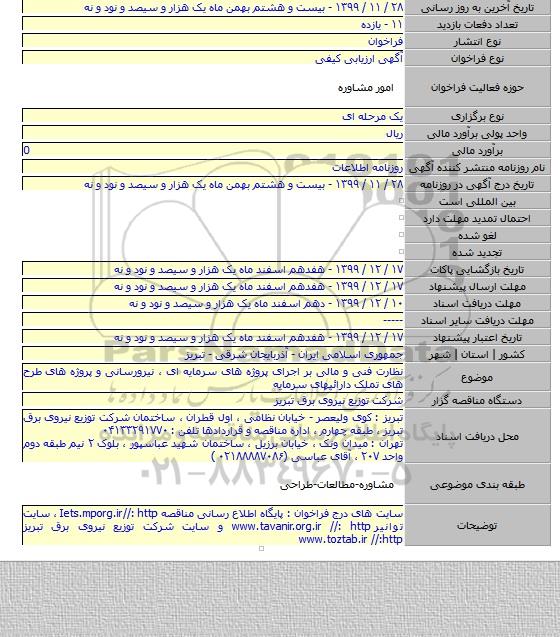 تاریخ آخرین به روز رسانی ۲۸ / ۱۱ / ۱۳۹۹ - بیست و هشتم بهمن ماه یک هزار و سیصد و نود و نه
تعداد دفعات بازدید ۱۱ - یازده
نوع انتشار فراخوان
نوع فراخوان آگهی ارزیابی کیفی
حوزه فعالیت فراخوان امور مشاوره
نوع برگزاری یک مرحله ای
واحد پولی برآورد مالی ریال
برآورد مالی 0
نام روزنامه منتشر کننده آگهی روزنامه اطلاعات
تاریخ درج آگهی در روزنامه ۲۸ / ۱۱ / ۱۳۹۹ - بیست و هشتم بهمن ماه یک هزار و سیصد و نود و نه
بین المللی است
احتمال تمدید مهلت دارد
لغو شده
تجدید شده
تاریخ بازگشایی پاکات ۱۷ / ۱۲ / ۱۳۹۹ - هفدهم اسفند ماه یک هزار و سیصد و نود و نه
مهلت ارسال پیشنهاد ۱۷ / ۱۲ / ۱۳۹۹ - هفدهم اسفند ماه یک هزار و سیصد و نود و نه
مهلت دریافت اسناد ۱۰ / ۱۲ / ۱۳۹۹ - دهم اسفند ماه یک هزار و سیصد و نود و نه
مهلت دریافت سایر اسناد -----
تاریخ اعتبار پیشنهاد ۱۷ / ۱۲ / ۱۳۹۹ - هفدهم اسفند ماه یک هزار و سیصد و نود و نه
کشور | استان | شهر جمهوری اسلامی ایران - آذربایجان شرقی - تبریز
موضوع نظارت فنی و مالی بر اجرای پروژه های سرمایه ای ، نیرورسانی و پروژه های طرح
های تملک دارائیهای سرمایه
دستگاه مناقصه گزار شرکت توزیع نیروی برق تبریز
محل دریافت اسناد تبریز : کوی ولیعصر - خیابان نظامی ، اول قطران ، ساختمان شرکت توزیع نیروی برق
تبریز ، طبقه چهارم ، اداره مناقصه و قراردادها تلفن : ۰۴۱۳۳۲۹۱۷۷۰
تهران : میدان ونک ، خیابان برزیل ، ساختمان شهید عباسپور ، بلوک ۲ نیم طبقه دوم
واحد ۲۰۷ ، آقای عباسی (۰۲۱۸۸۸۸۷۰۸۶)
۰۲۱-۸۸۳۴۹۶۷۰-۵
طبقه بندی موضوعی مشاوره-مطالعات-طراحی
توضیحات سایت های درج فراخوان : پایگاه اطلاع رسانی مناقصه Iets.mporg.ir//: http ، سایت
توانیر www.tavanir.org.ir //: http و سایت شرکت توزیع نیروی برق تبریز
www.toztab.ir //:http